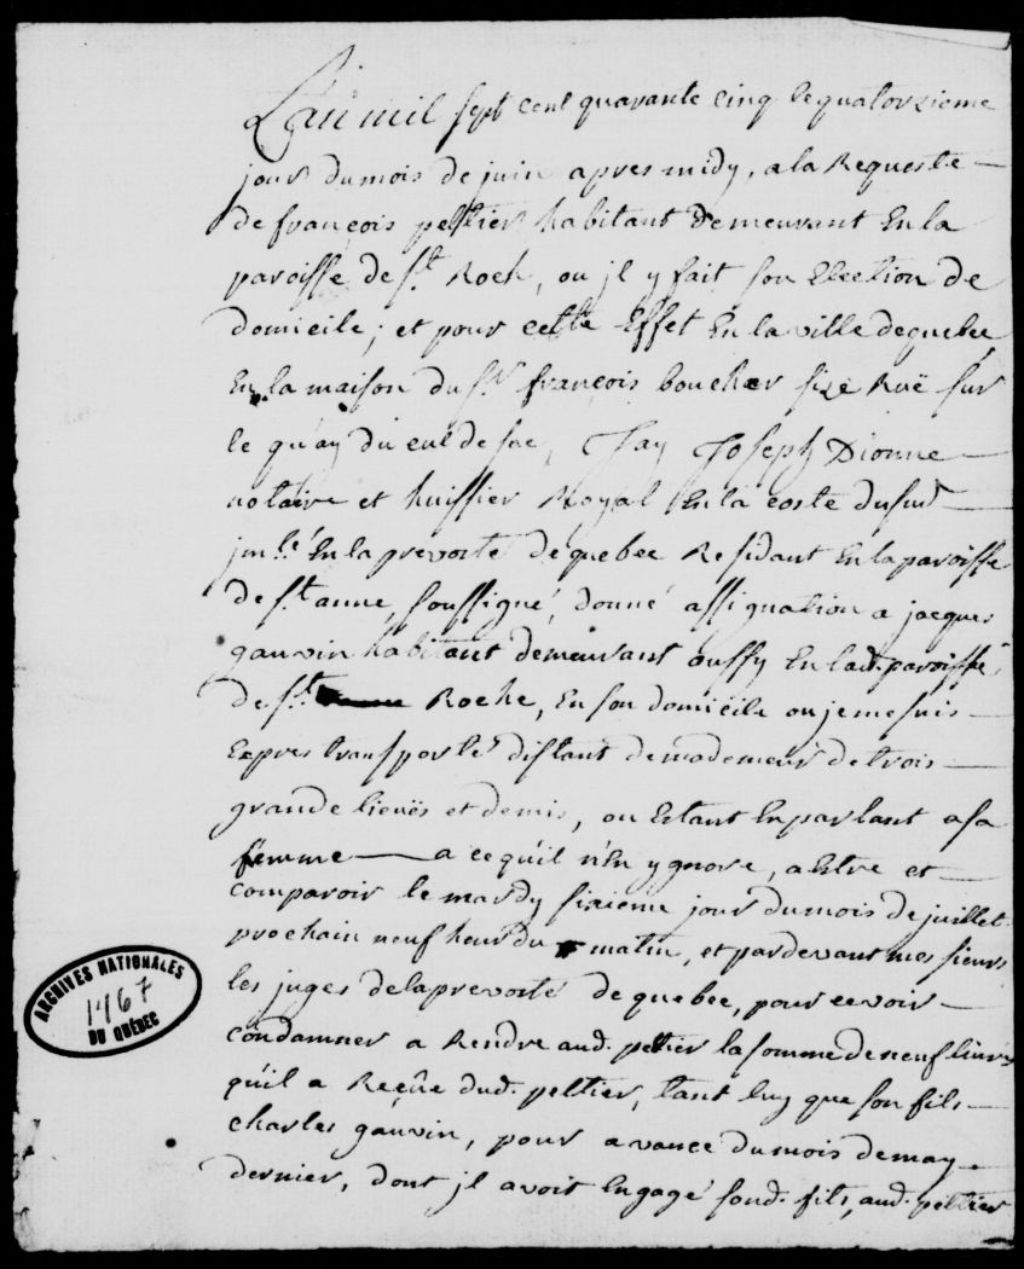 L'an mil sept cent quarante cinq le quatorzieme
jour du mois de juin apres midy, a la Requeste
de françois peltier habitant demeurant En la
paroisse de st. Roch, ou jl y fait son Election de
domicile; et pour cette Effet En la ville de quebec
En la maison du sr. françois boucher size Ruë sur
le quay du cul de sac, Jay Joseph Dionne
notaire et huissier Royal En la coste du sud
jm.lé En la prevosté de quebec Residant En la paroisse
de st. anne, soussigné, donné assignation a jacques
gauvin habitant demeurant oussy En lad. paroisse
de st. Roche, En son domicile ou je me suis
Expres transporté distant de ma demeur de trois
grande lieuës et demis, ou Estant En parlant a sa
femme a ce qu'il n'En ygnore, a Estre et
comparoir le mardy sixieme jour du mois de juillet
prochain neuf heur du matin, et pardevant mes sieurs
les juges de la prevosté de quebec, pour ce voir
condamner a Rendre aud. peltier la somme de neuf livres
qu'il a Reçûe dud. peltier, tant luy que son fils
charles gauvin, pour avance du mois de may
dernier, dont jl avoit Engagé sond. fils, aud. peltier
ARCHIVES NATIONALES
1467
DU QUÉBEC